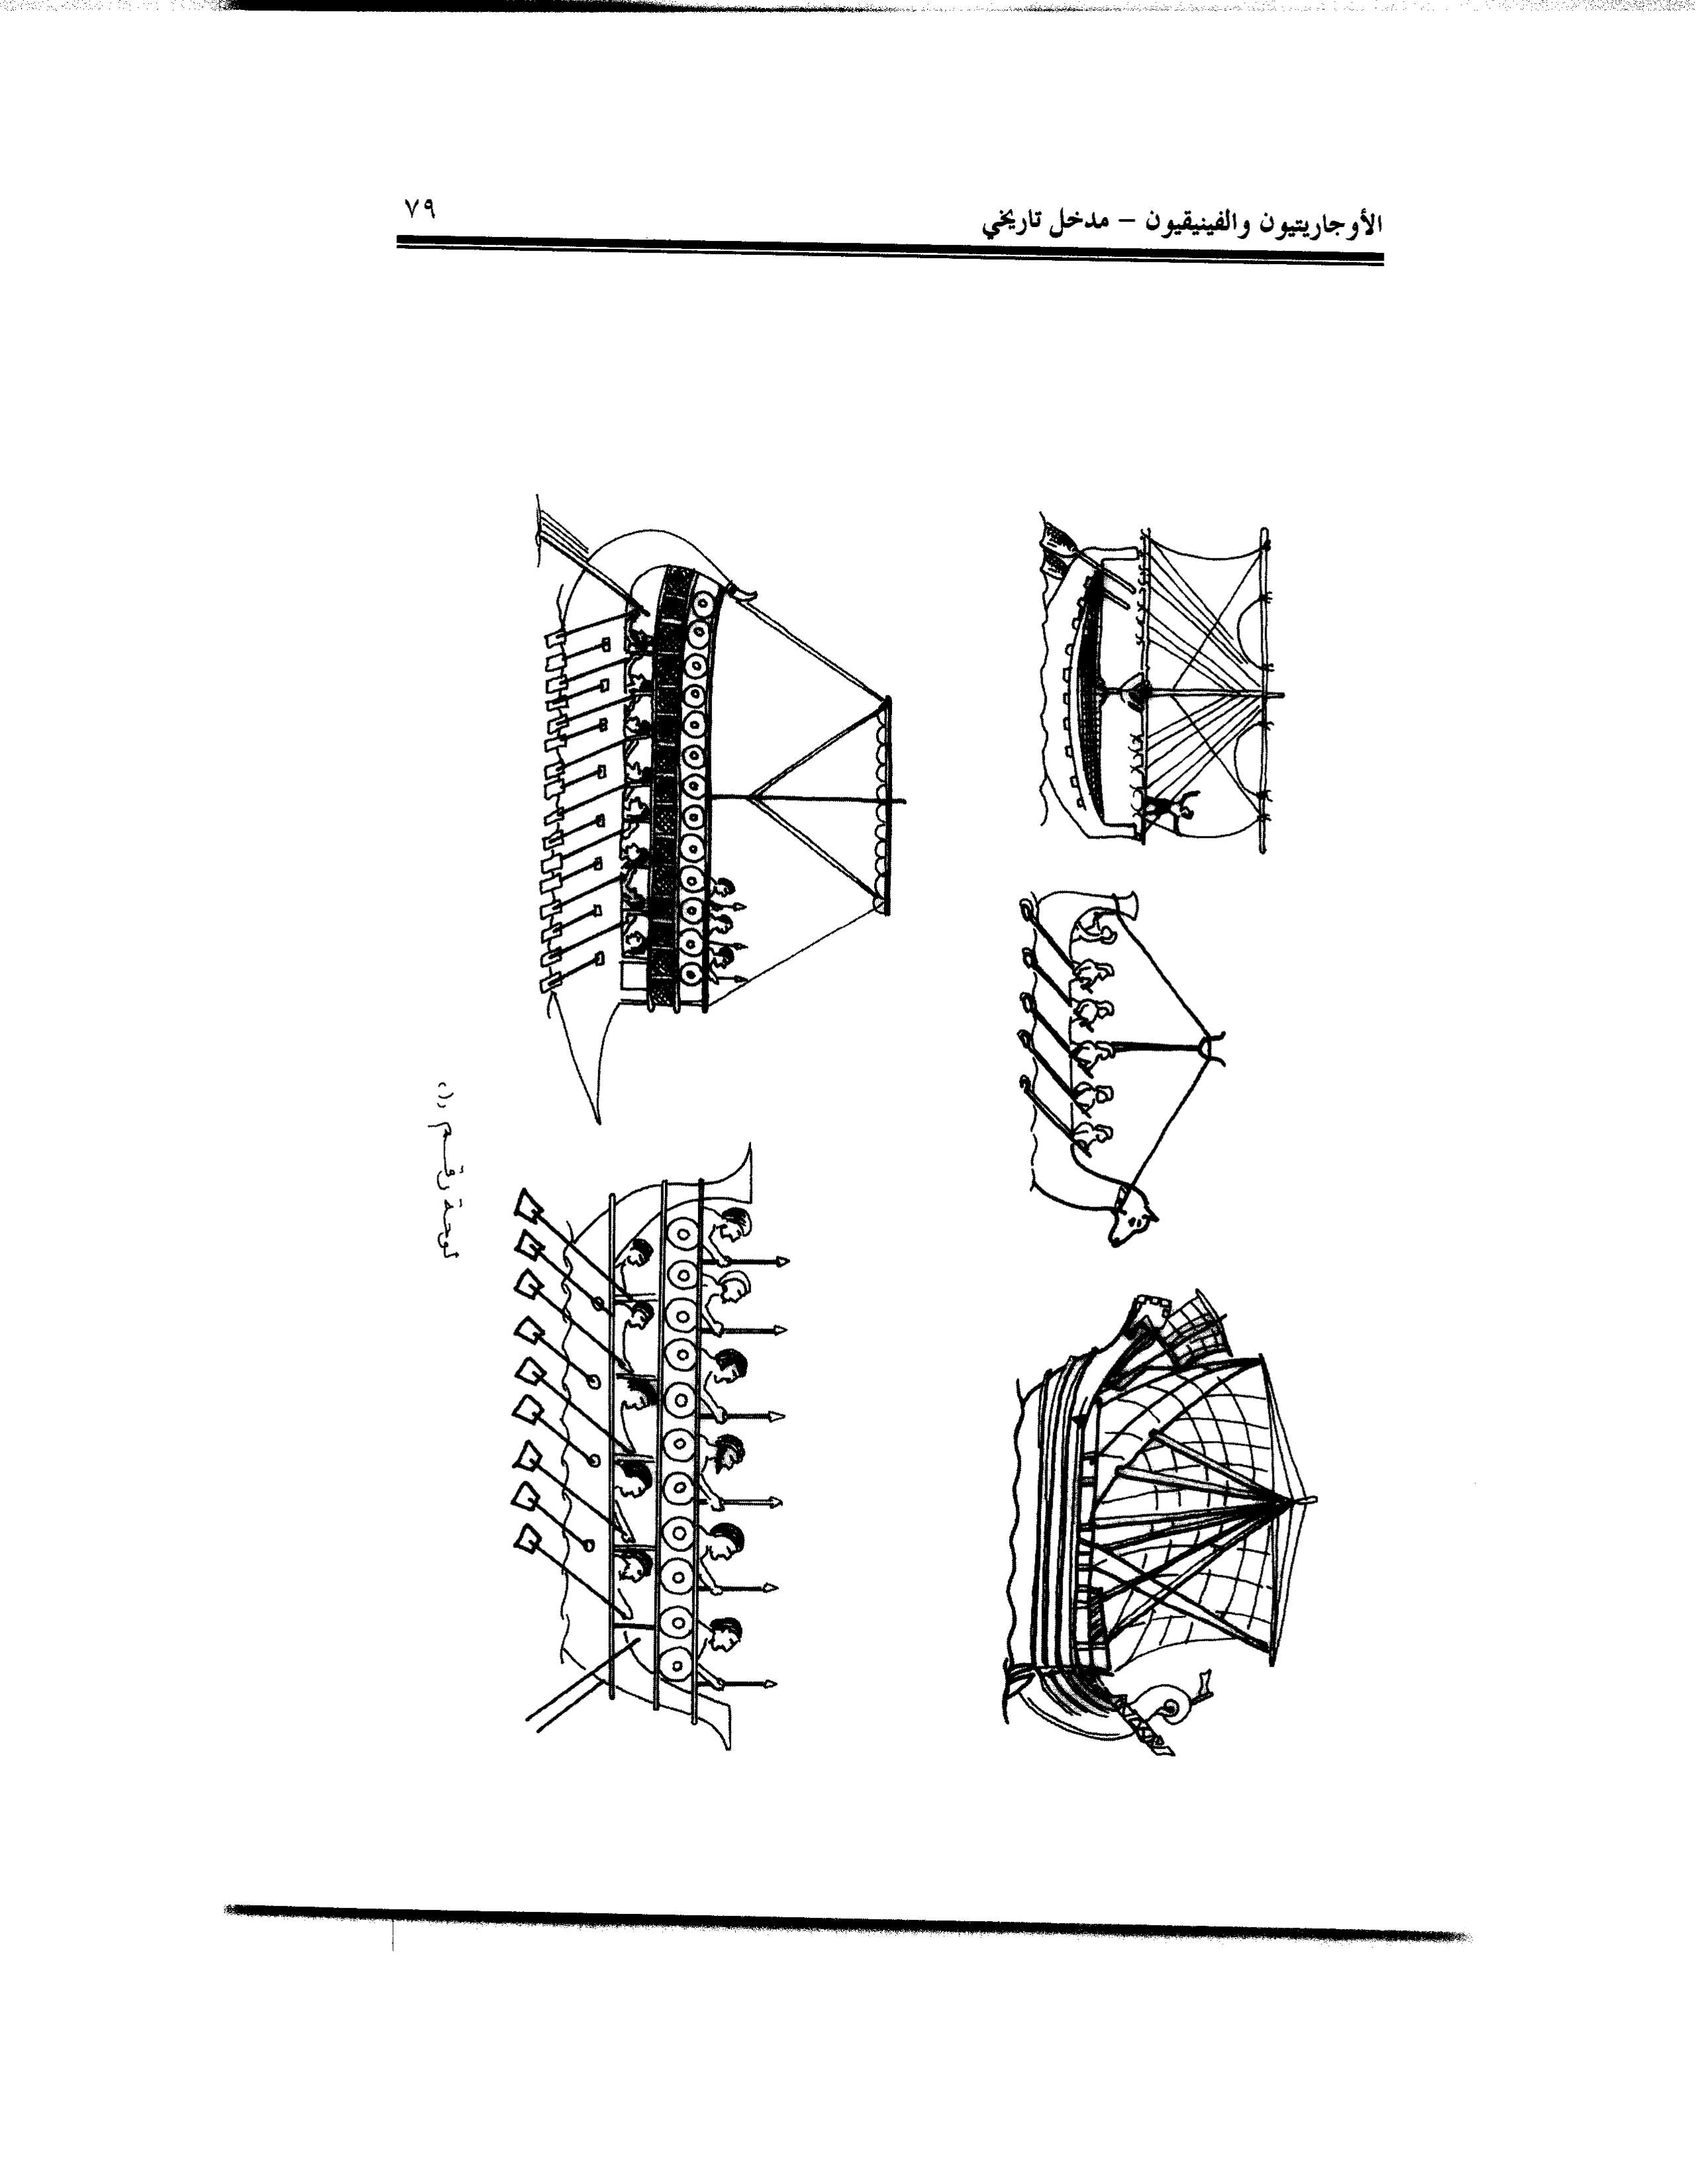 الأوجاريتيون والفينيقيون – مدخل تاريخي
٧٩
لوحة رقم (١)